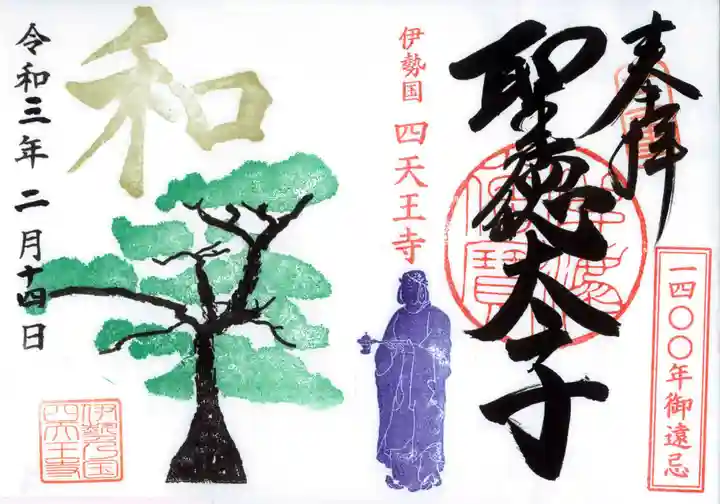 奉拝
聖徳太子
一四〇〇年御遠忌
伊勢国 四天王寺
和
令和三年二月十四日
伊勢国
四天王寺